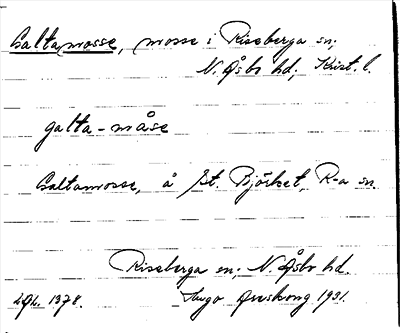 Galtamosse, mosse i Riseberga sn;
N. Åsbo hd; Krist. l.
galta-måse
Galtamosse, å st. Björket, R-a sn.
Riseberga sn; N. Åsbo hd.
LAL. 1378. Hugo Areskoug 1931.